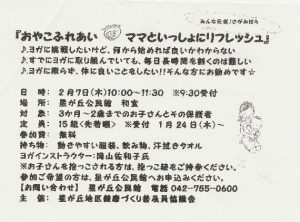 みんな元気!さがみはら
『おやこふれあい ママといっしょにリフレッシュ』
♪ヨガに挑戦したいけど、何から始めれば良いかわからない
♪すでにヨガに取り組んでいても、毎日長時間を割くのは難しい
♪ヨガに限らず、体に良いことをしたい!!そんな方にお勧めです☆
日 時: 2月7日(木)10:00~11:30 ※9:30受付
場 所: 星が丘公民館 和室
対 象: 3か月~2歳までのお子さんとその保護者
定 員: 15組<先着順> ※受付 1月24日(木)~
参加費: 無料
持ち物: 動きやすい服装、飲み物、汗拭きタオル
ヨガインストラクター:陶山佐和子氏
※お子さんを抱っこされる方は、抱っこ紐をご持参ください。
参加ご希望の方は、星が丘公民館へお申込みください。
【お問い合わせ】 星が丘公民館 電話 042-755-0600
主 催: 星が丘地区健康づくり普及員協議会